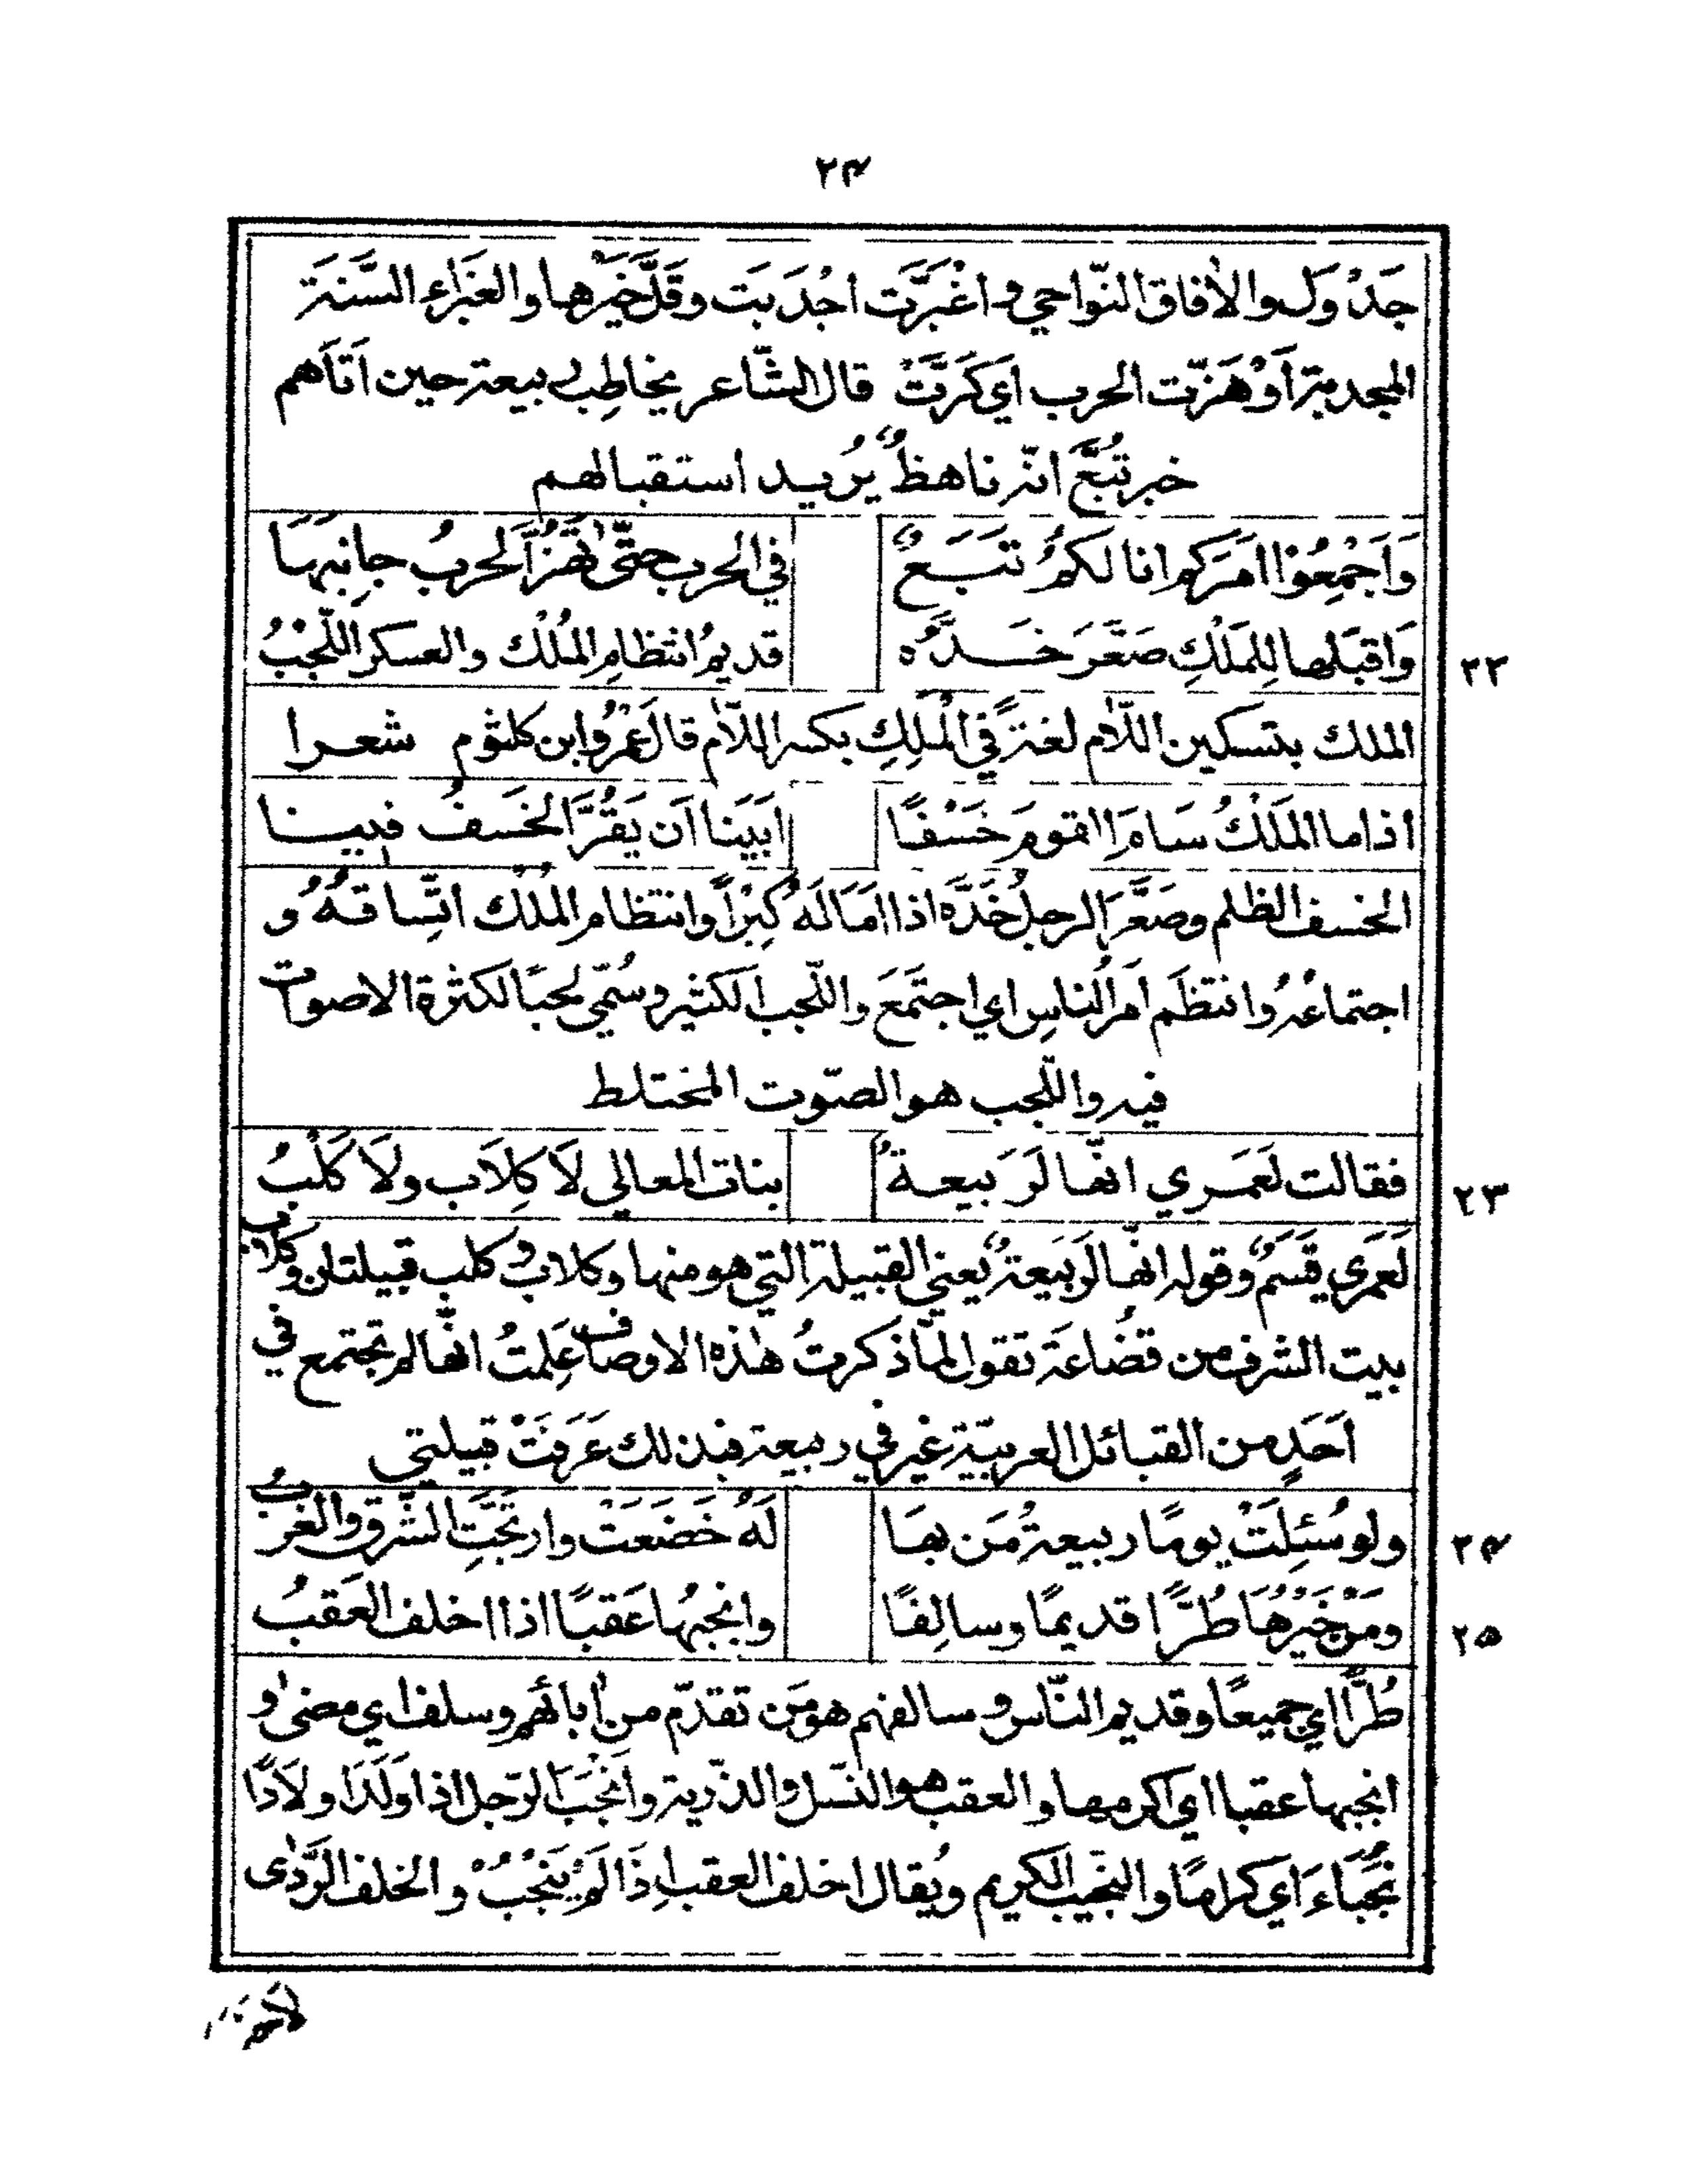 ٢٤
جَدْ وَل والاٰفاق النّواحي واغْبَرَّت اجْدَبَت وقَلَّ خَيْرها والغَبَراء السَّنَة
المجدبة أَوْهَزّت الحرب أي كَرَّتْ قال الشّاعر يخاطِب ربيعة حين أتَاهم
خبر تُبَّع انّه ناهظٌ يُريد استقبالهم
وَاَجْمِعُوْا امرَكم انا لكمُ تبَعٌ في الحرب حتّى تَهُزَّ الحربُ جانِبَهَا
٢٢ وَاقبَلها لِلمَلْكِ صَعَّرَ خَدَّهُ قديمُ انتظامِ المُلْك والعسكر اللّجْبُ
الملك بتسكين اللّام لغةً في المَلِكِ بكسر اللّام قال عَمْرُو ابن كلثوم شعرا
اذاما المَلْكُ سَامَ القومَ خَسْفًا ابَيَنا اَن يَقُرَّ الخَسفُ فينا
الخسف الظلم وصَعَّرَ الرجلُ خَدَّه اذا امَالَهُ كِبْراً وانتظام المُلْك اتّساقهُ و
اجتماعُهُ وانتظَم امرُ الناسِ اي اجتَمَعَ واللّجب الكثير وسُمّي لجبًا لكثرة الاصوات
فيه واللّجب هو الصّوت المختلط
٢٣ فقالت لَعَمري انّها لرَبيعةُ بنات المعالي لَا كِلَاب ولَا كَلْبُ
لَعَمري قَسَمٌ وقوله انّها لرَبيعةٌ يعني القبيلة التي هو منها وكلابٌ وكلب قبيلتان وكلاب
بيت الشرف من قضُاعَة تقول لمّا ذكرتُ هٰذه الاوصاف عَلِمتُ انّها لم تجتمع في
اَحَدٍ من القبائل العربيّة غير في ربيعة فبذلك عَرَفتْ قبيلتي
٢٤ ولو سُئِلَتْ يومًا ربيعةُ مَن بهَا لَهُ خَضَعَتْ وارتجَّتِ الشّرق والغربُ
٢٥ ومَنْ خَيْرُهَا طُرًّا قديمًا وسالِفًا وانجبُها عَقبًا اذا اخلف العَقبُ
طُرًّا اي جميعًا وقديم النّاس وسالفهم هو مَن تقدّم من اٰبائهم وسلف اي مضىٰ و
انجبها عقبا اي اكرمها والعقب هو النّسل والذّرية واَنْجَبَ الرّجل اذا وَلَدَ اولَادًا
نُجَبَاءَ اَي كرامًا والنّجيب الكريم ويُقال اخلف العقب اِذَا لَمْ يَنْجُبْ والخلف الرَّدٰى